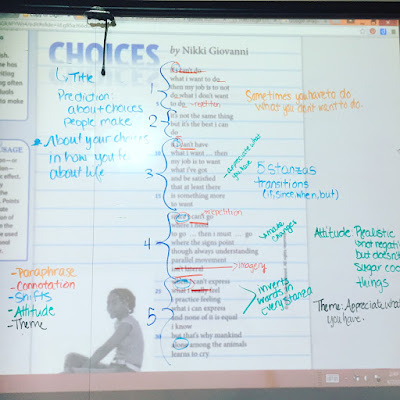 CHOICES
by Nikki Giovanni
Title
Prediction:
about choices
people make
About your choices
in how you to
about life
1
2
3
4
5
if i can't do
what i want to do
then my job is to not
do what i don't want
to do
repetition
it's not the same thing
but it's the best i can
do
if i can't have
what i want ... then
my job is to want
what i've got
and be satisfied
that at least there
is something more
to want
appreciate what
you have
since i can't go
where i
to go ... then i must ... go
where the signs point
though always understanding
parallel movement
isn't lateral
when i can't express
what i really feel
i practice feeling
what i can express
and none of it is equal
i know
but that's why mankind
alone among the animals
learns to cry
repetition
make
changes
imagery
inverts
words in
every stanza
Sometimes you have to do
what you dont want to do.
5 stanzas
transitions
(if, since, when, but)
Attitude: Realistic
not negati
but doesn't
sugar coa
things
Theme: Appreciate wha
you have.
-Paraphrase
-Connotation
-Shifts
-Attitude
-Theme